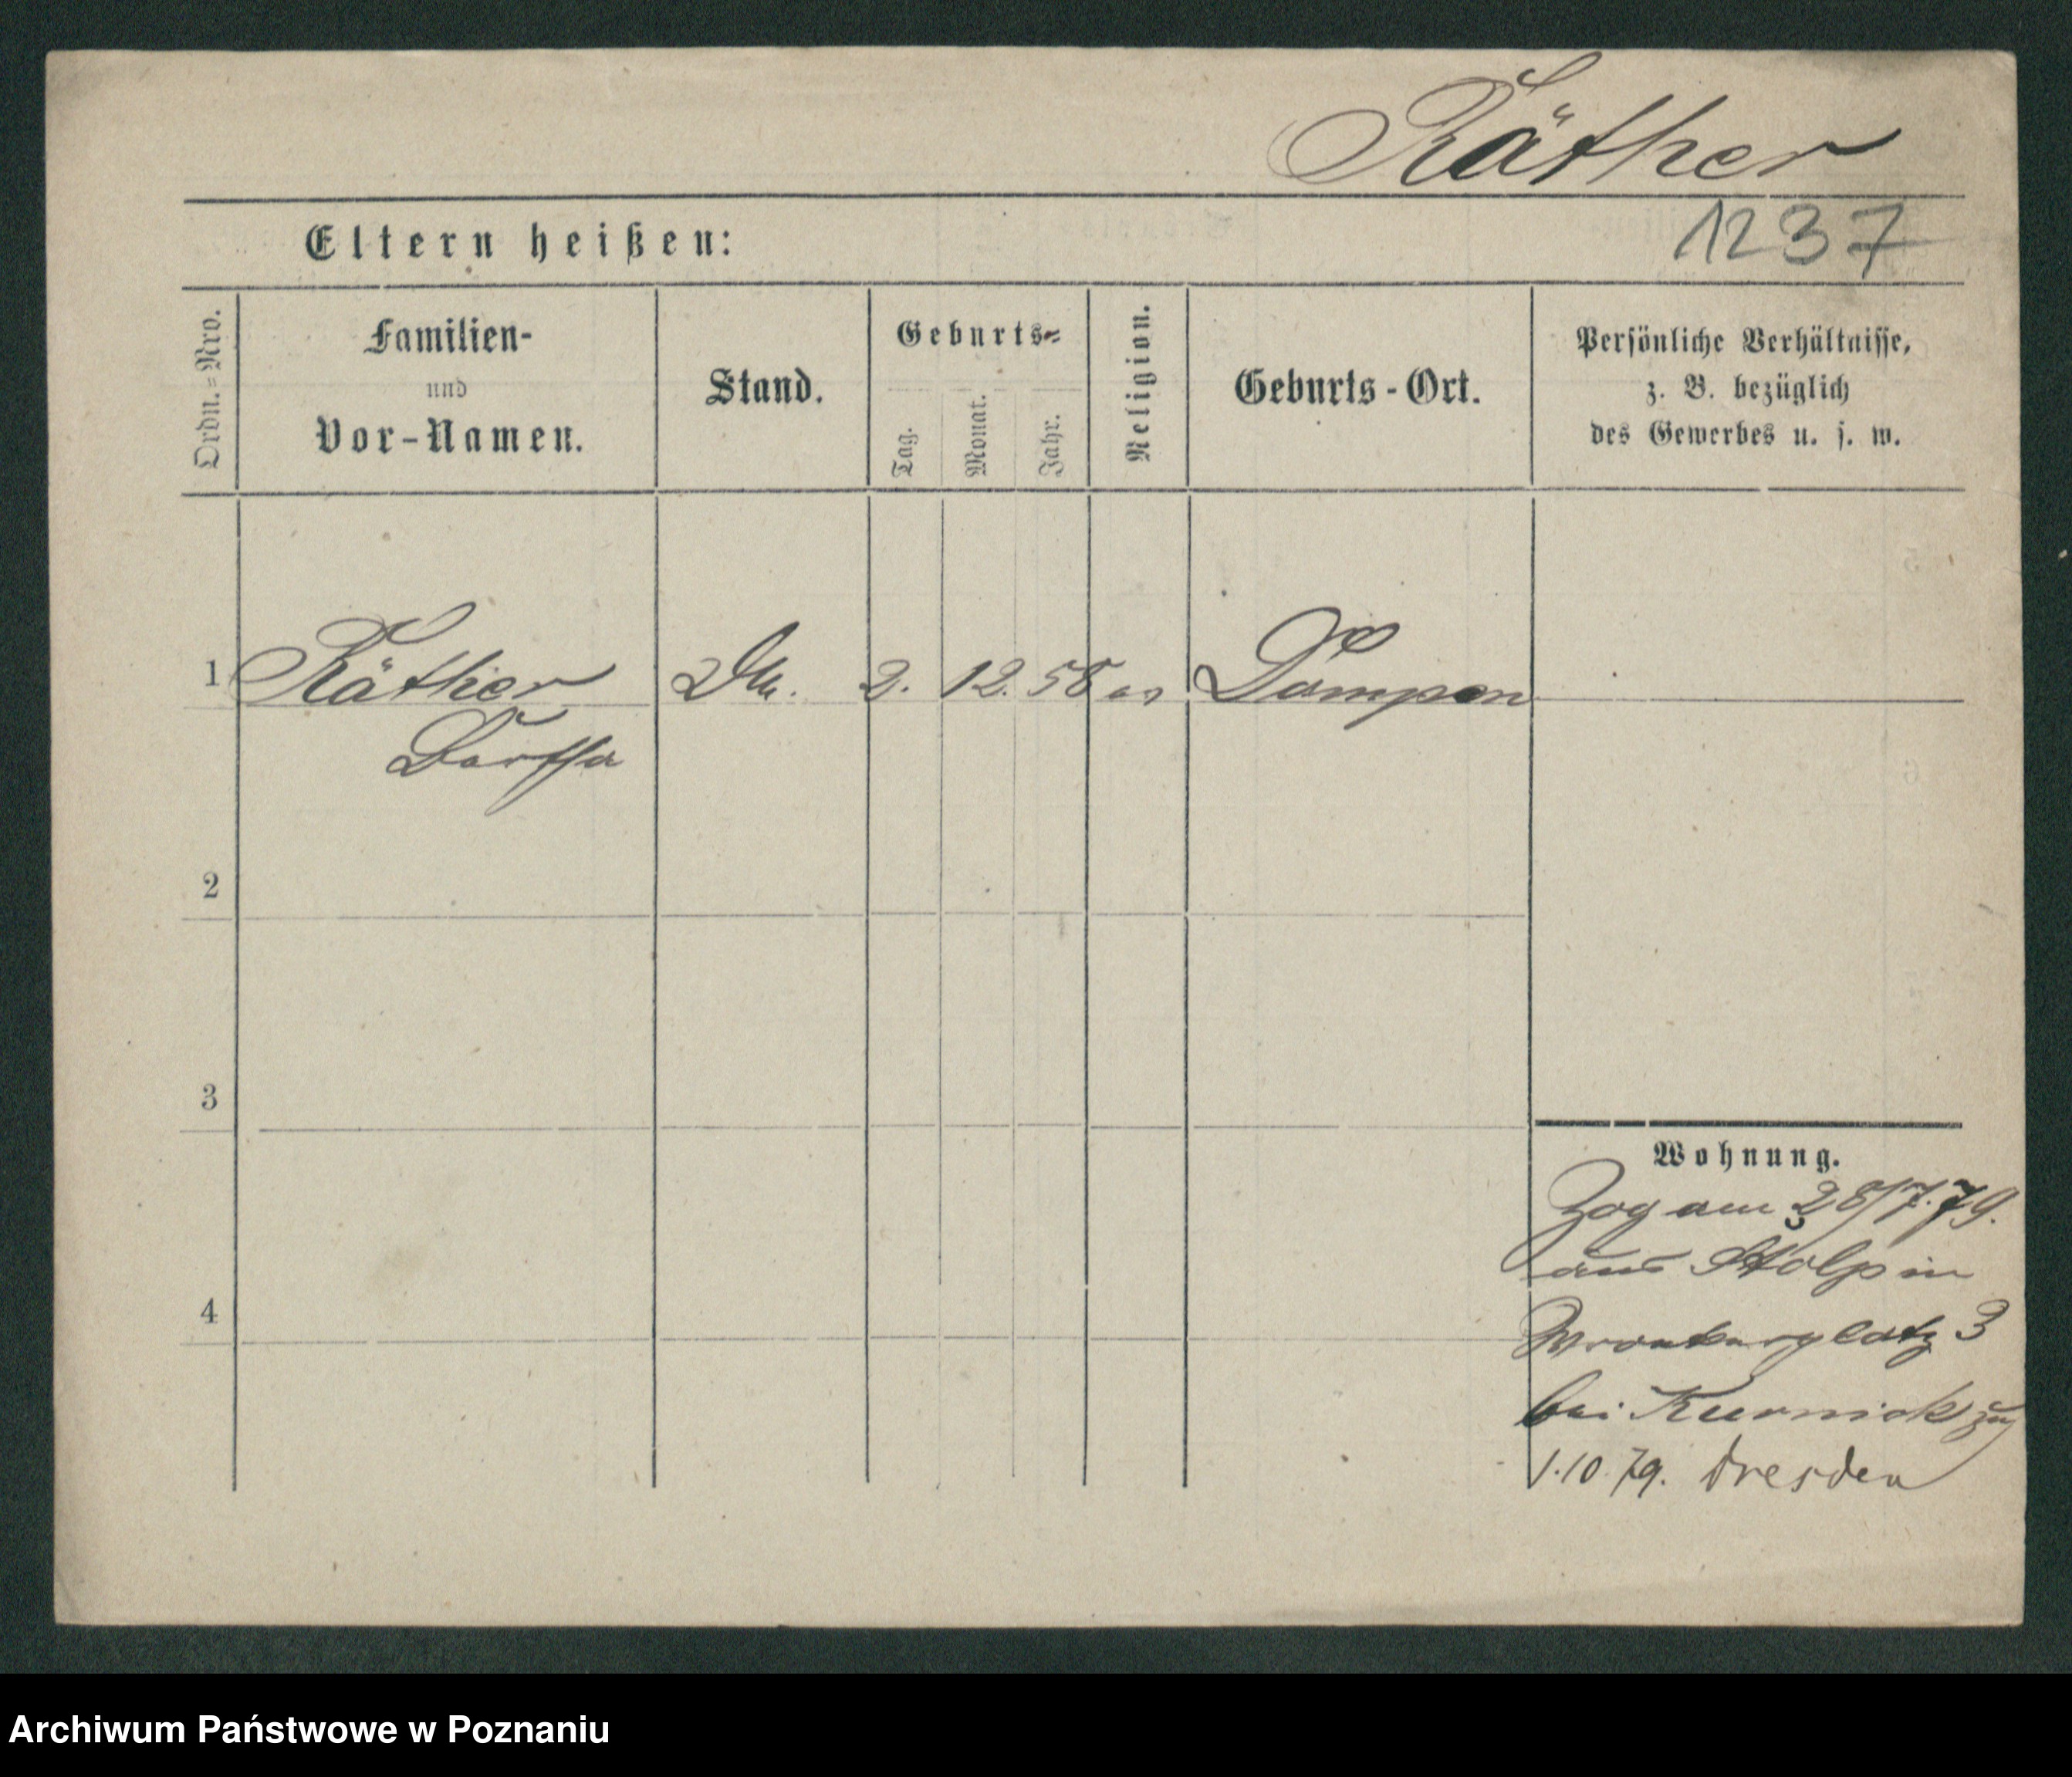 Räther
Eltern heißen:
1237
Ordn.=Nro.
Familien-
und
Vor-Namen.
Stand.
Geburts=
Tag.
Monat.
Jahr.
Religion.
Geburts-Ort.
Persönliche Verhältnisse,
z. B. bezüglich
des Gewerbes u. s. w.
1 Räther 2. 12. 58 ev
2
3
4
Wohnung.
Zog am 28/7.79.
aus Stolp in
Wronkerplatz 3
bei Kurnick zog
1.10.79. Dresden
Archiwum Państwowe w Poznaniu